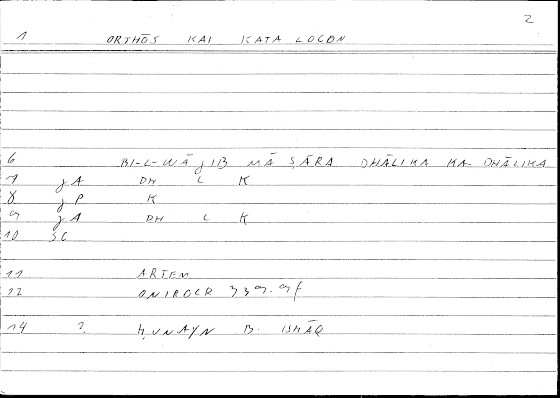 2
1 ORTHŌS KAI KATA LOGON
6 BI-L-WĀǧIB MĀ ṢĀRA DHĀLIKA KA-DHĀLIKA
7 ǧA DH L K
8 ǧP K
9 ǧA DH L K
10 SC
11 ARTEM
12 ONIROCR 339.9f
14 1. ḤUNAYN B. ISḤĀQ